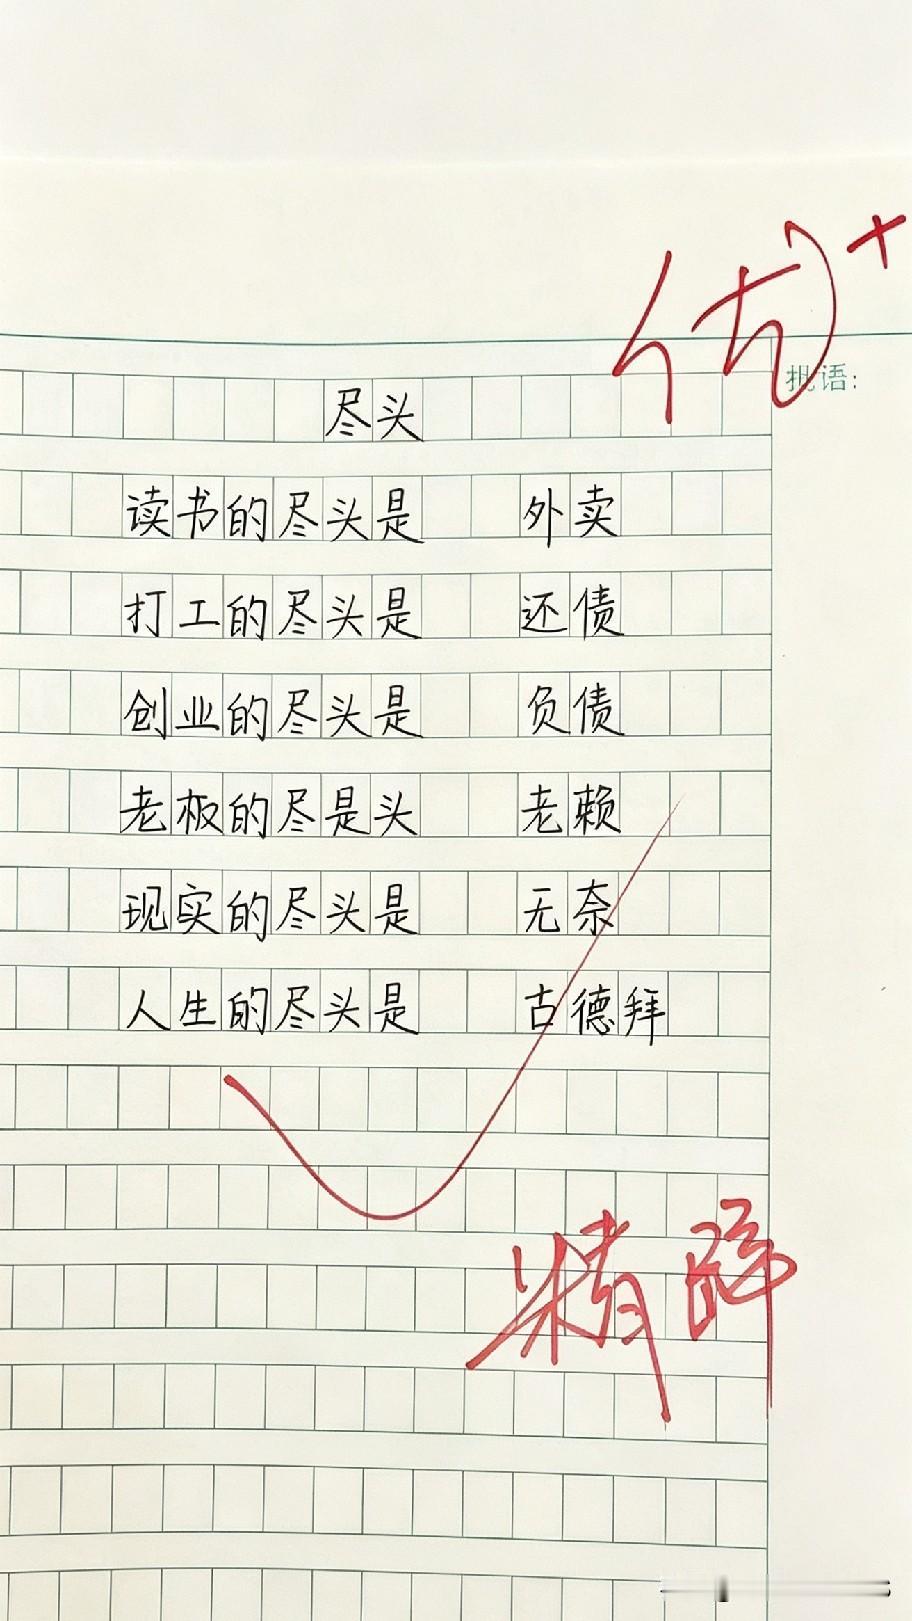 优+
批语:
尽头
读书的尽头是 外卖
打工的尽头是 还债
创业的尽头是 负债
老板的尽是头 老赖
现实的尽头是 无奈
人生的尽头是 古德拜
精辟